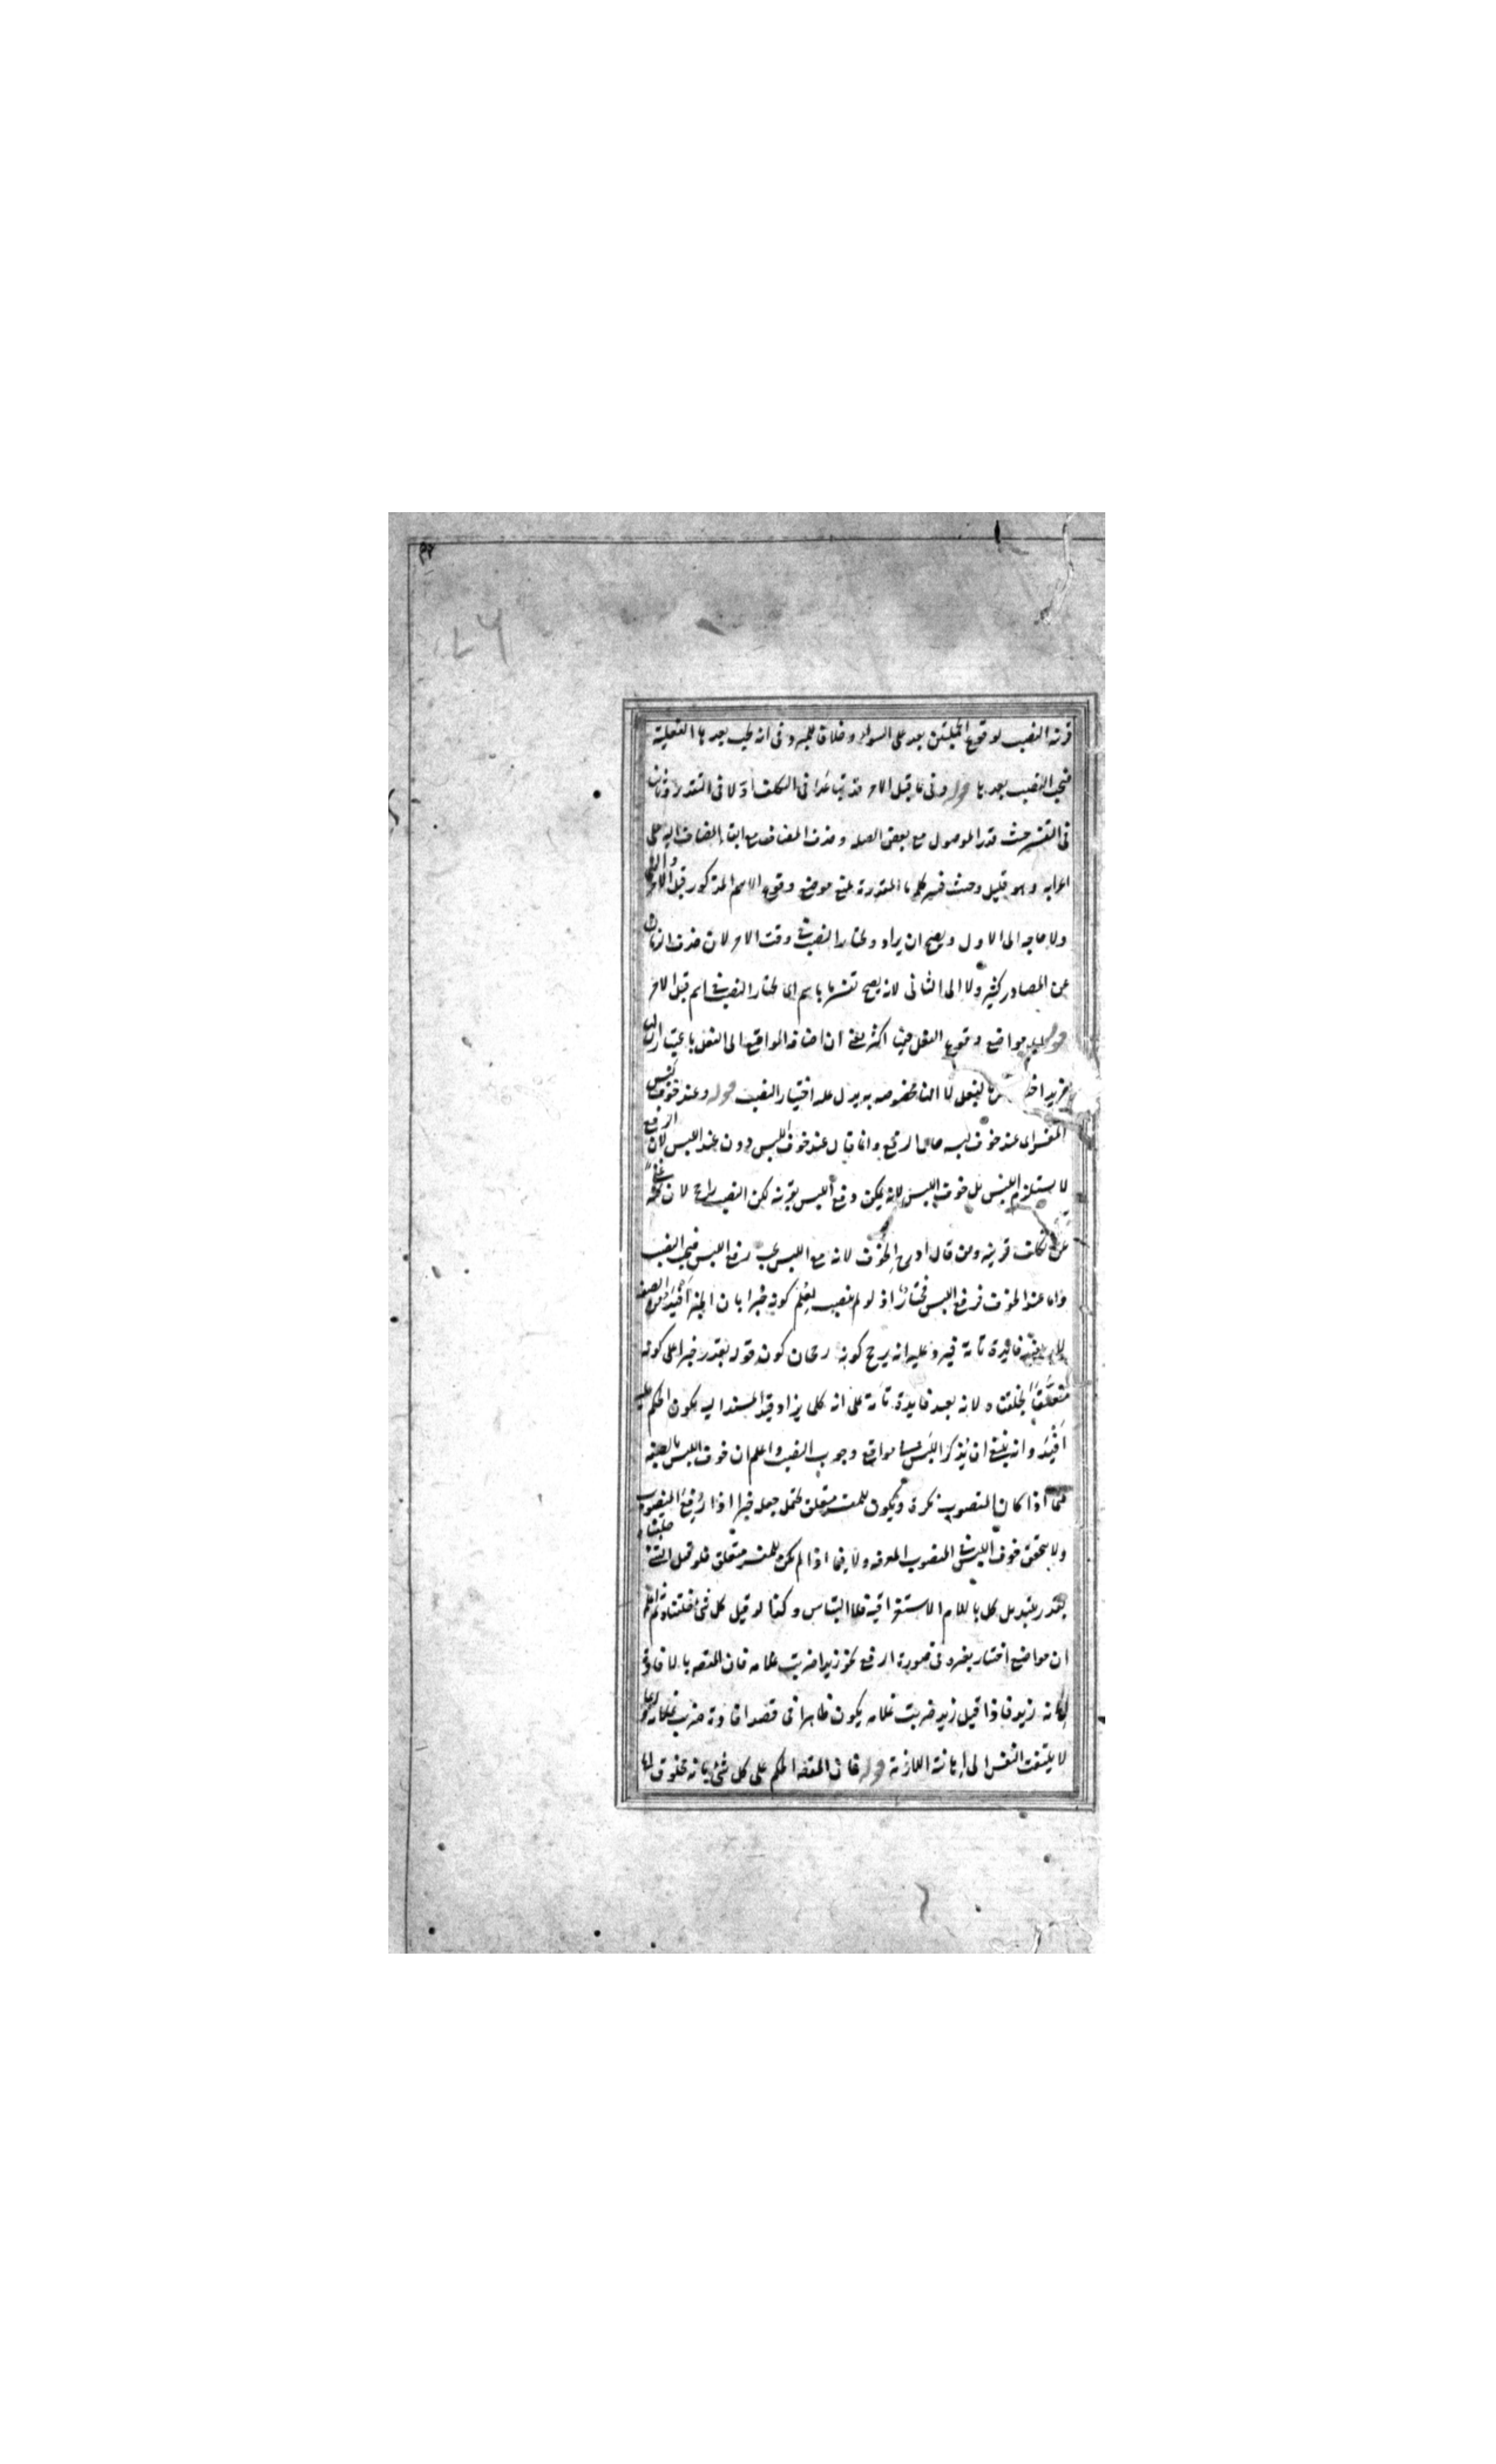 قرنه النصب لوقوع الجملتين بعده على السواد وخلافا للمبرد فى انه يجب بعدها الفعلية
فيجب النصب بعدها قوله وفى ما قبل الامر فى التكلف اذ لا فى التقدير
فى التفسير حيث قدر الموصول مع بعض الصله وحذف المضاف مع ابقاء المضاف اليه على
اعرابه وهو قليل وحيث فسر كلمة ما المقدرة بمعنى موضع وقوع الاسم المذكور قبل الامر
ولا حاجه الى الاول ويصح ان يراد ويختار النصب فى وقت الامر لان حذف الزمان
عن المصادر كثير ولا الى الثانى لانه يصح تفسيرها باسم اى يختار النصب فى اسم قبل الامر
مواضع وقوع الفعل فيها اكثر يعنى ان اضافة المواقع الى الفعل باعتبار ان لها
مزيد بالفعل لا انها مخصوصه به يدل عليه اختيار النصب قوله وعند خوف لبس
المفسر اى عند خوف لبسه حال الرفع وانما قال عند خوف اللبس دون عند اللبس لان الرفع
لا يستلزم اللبس بل خوف اللبس لانه يمكن دفع اللبس بقرينه لكن النصب راجح لان فيه غنى
عن تكلف قرينه ومن قال ادرج الخوف لانه مع اللبس يجب رفع اللبس فيجب النصب
واما عند الخوف فرفع اللبس مختار اذ لو لم ينصب لعلم كونه خبرا بان الخبر افيد من الصفه
فائدة تامة فيه وعليه انه يرجح كونه رجحان كون قوله بقدر خبرا على كونه
متعلقا بخلقناه لانه يفيد فايدة تامة على انه كلما يزاد قيد المسند اليه يكون الحكم عليه
افيد وانه ينبغى ان يذكر اللبس فى مواقع وجوب النصب واعلم ان خوف اللبس بالصفه
فيما اذا كان المنصوب نكرة ويكون للمفسر متعلق يحتمل جعله خبرا اذا رفع المنصوب
ولا يتحقق خوف اللبس فى المنصوب المعرفه ولا فيما اذا لم يكن للمفسر متعلق فلو قيل الشئ خلقناه
بقدر بتبديل كل باللام الاستغراقية فلا التباس وكذا لو قيل كل شئ خلقناه ثم اعلم
ان مواضع اختار يغيره فى صورة الرفع نحو زيدا ضربت غلامه فان المقصد بالافادة
اهانة زيد فاذا قيل زيد ضربت غلامه يكون ظاهرا فى قصد افادة ضرب غلامه
لا يلتفت النفس الى اهانته اللازمة قوله فان المقصد الحكم على كل شئ بانه مخلوق لنا